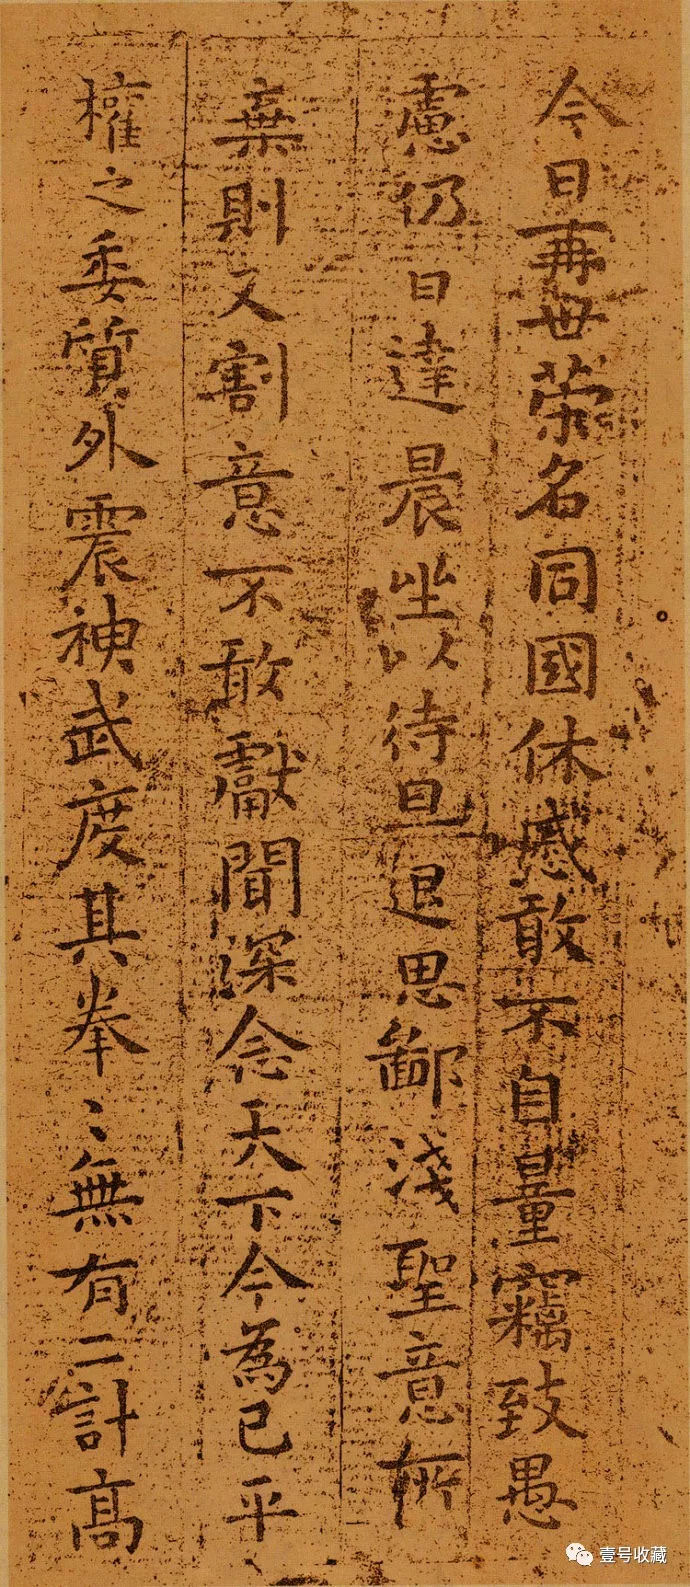 今日再世荣名同國休慼敢不自量竊致愚
慮仍日達晨坐以待旦退思鄙淺聖意所
棄則又割意不敢獻聞深念天下今為已平
權之委質外震神武度其拳〻無有二計高
壹号收藏